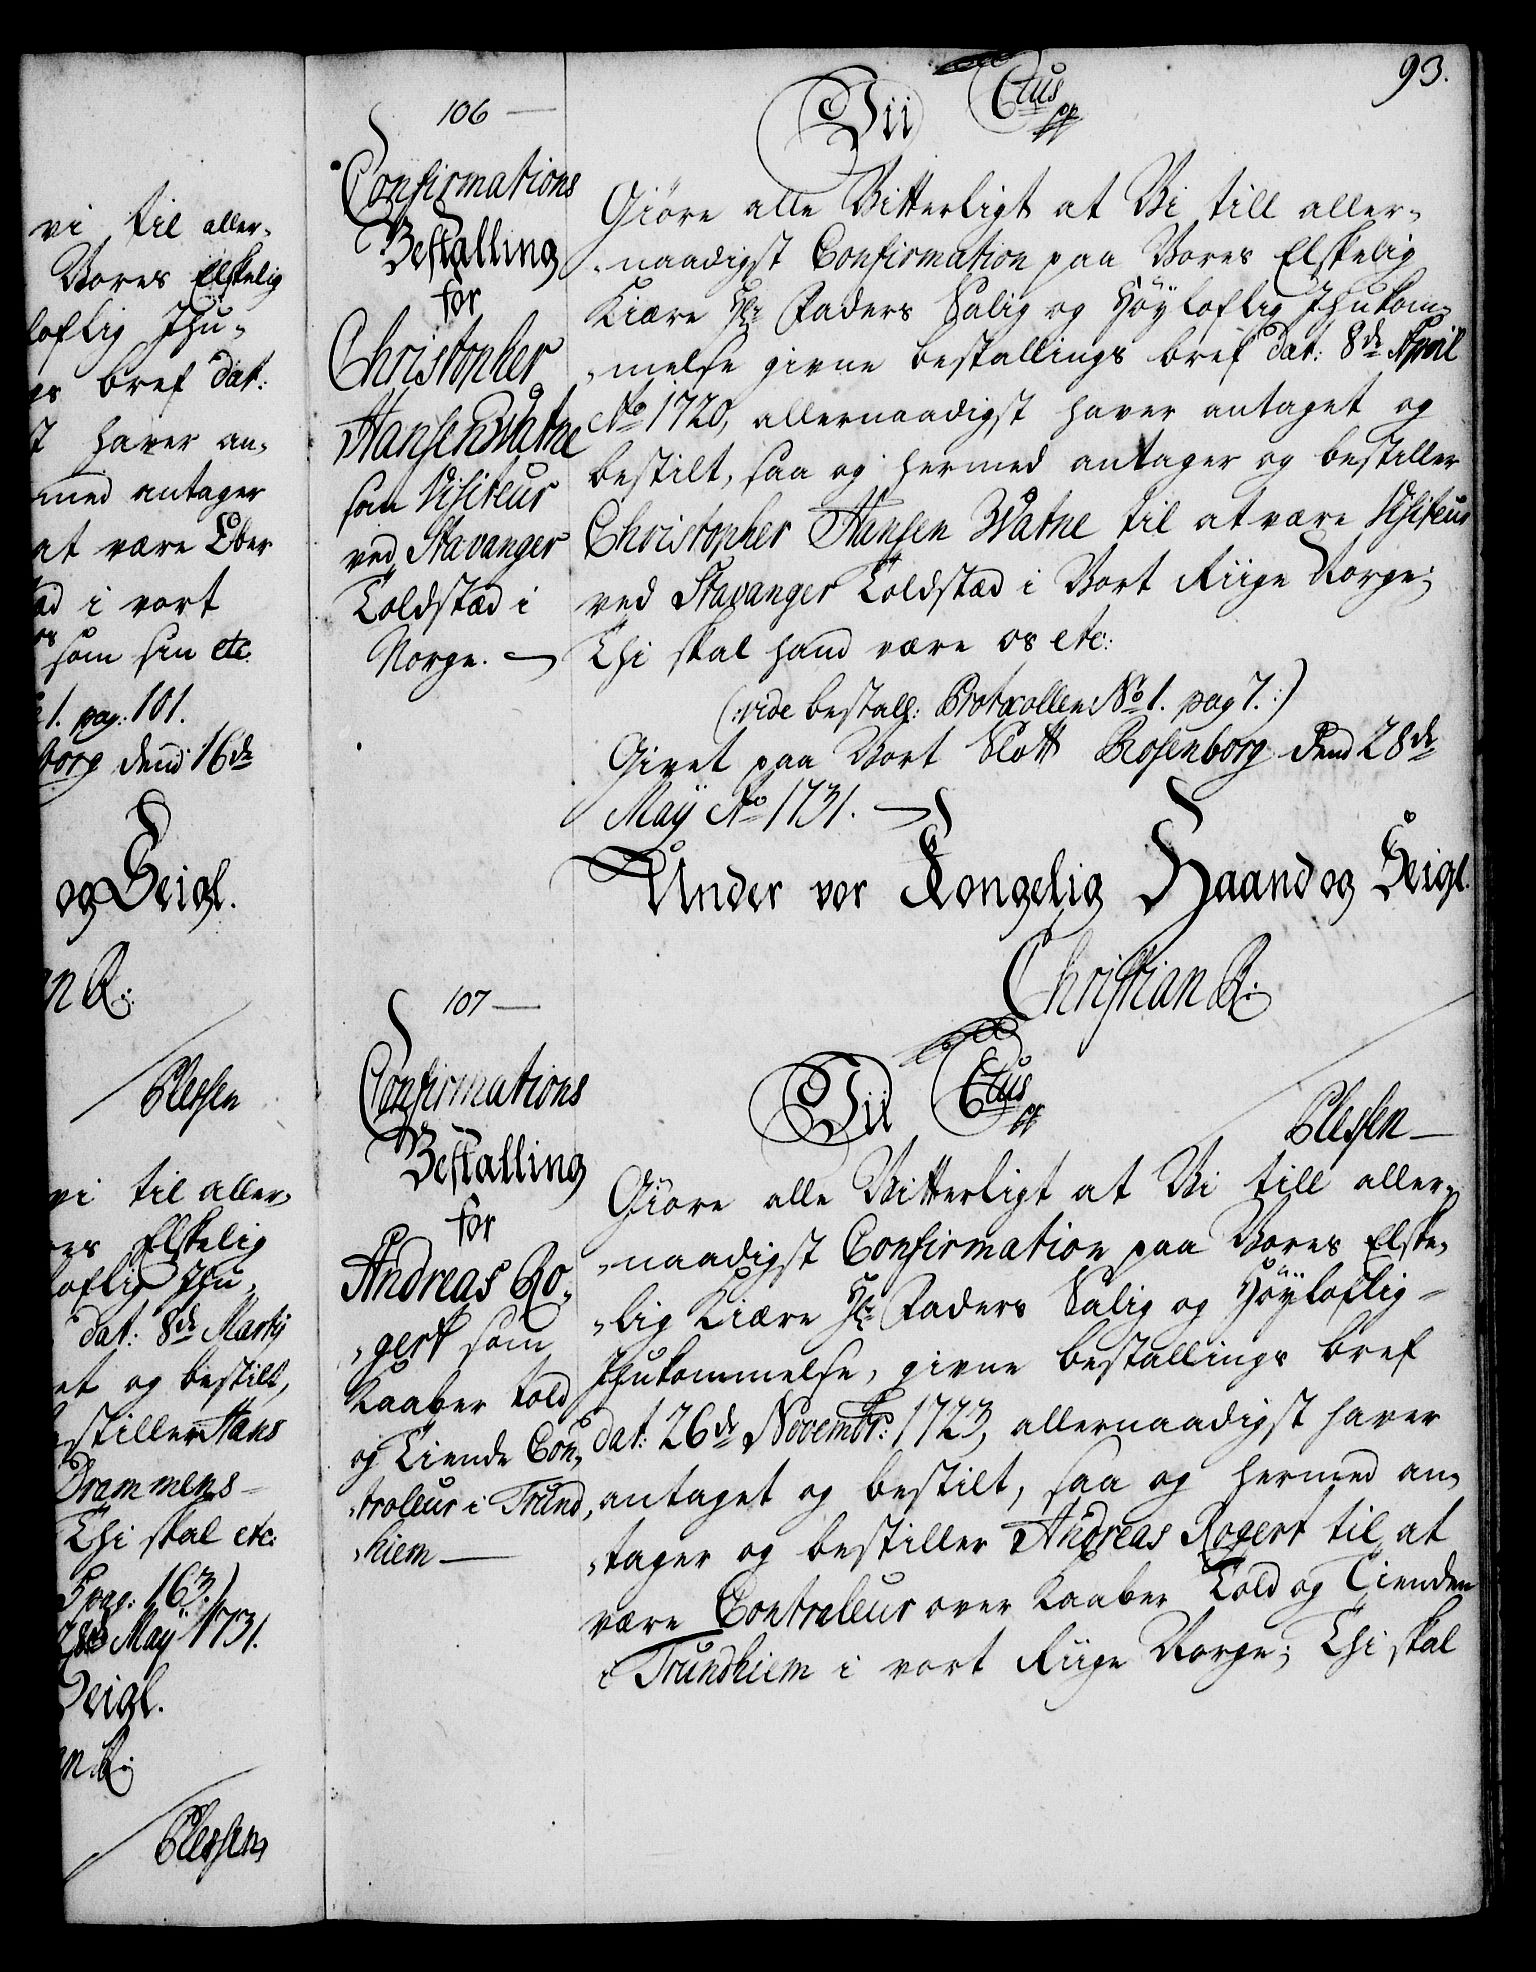 vi til aller-
Vores Elskelig
loflig Ihu-
gs bref dat:
haver an-
med antager
at være Ober
i vort
som sin etc.
1. pag: 101.
borg dend 16de
og Seigl.
n R:
Plessen
vi til aller-
es Elskelig
loflig Ihu-
dat: 8de Martij
et og bestilt,
stiller Hans
Drammens
Thi skal etc:
pag: 163.)
May 1731.
Seigl.
n R:
Plessen
93.
106
Confirmations
Bestalling
for
Christopher
Hansen Watne
som Visiteur
ved Stavanger
Toldstæd i
Norge.
Vii Ctus
Giøre alle Vitterligt at Vi till aller-
-naadigst Confirmation paa Vores Elskelig
Kiære Hr: Faders Salig og Høyloflig Ihukom-
-melse givne bestallings bref dat: 8de April
Ao 1720, allernaadigst haver antaget og
bestilt, saa og hermed antager og bestiller
Christopher Hansen Watne til at være Visiteur
ved Stavanger Toldstæd i Vort Riige Norge;
Thi skal hand være os etc:
(:vide bestall: Protocollen No 1. pag 7.:)
Givet paa Vort Slott Rosenborg dend 28de
Maÿ Ao 1731.
Under vor Kongelig Haand og Seigl.
Christian R:
Plessen
107
Confirmations
Bestalling
for
Andreas Ro-
-gert som
Kaaber told
og Tiende Con-
-troleur i Trund-
-hiem
Vii Ctus
Giøre alle Vitterligt at Vi till aller-
-naadigst Confirmation paa Vores Elske-
-lig Kiære Hr: Faders Salig og Høyloflig
Ihukommelse, givne bestallings bref
dat: 26de Novembr: 1723, allernaadigst haver
antaget og bestilt, saa og hermed an-
-tager og bestiller Andreas Rogert til at
være Contraleur over Kaaber Told og Tienden
i Trundhiem i vort Riige Norge; Thi skal